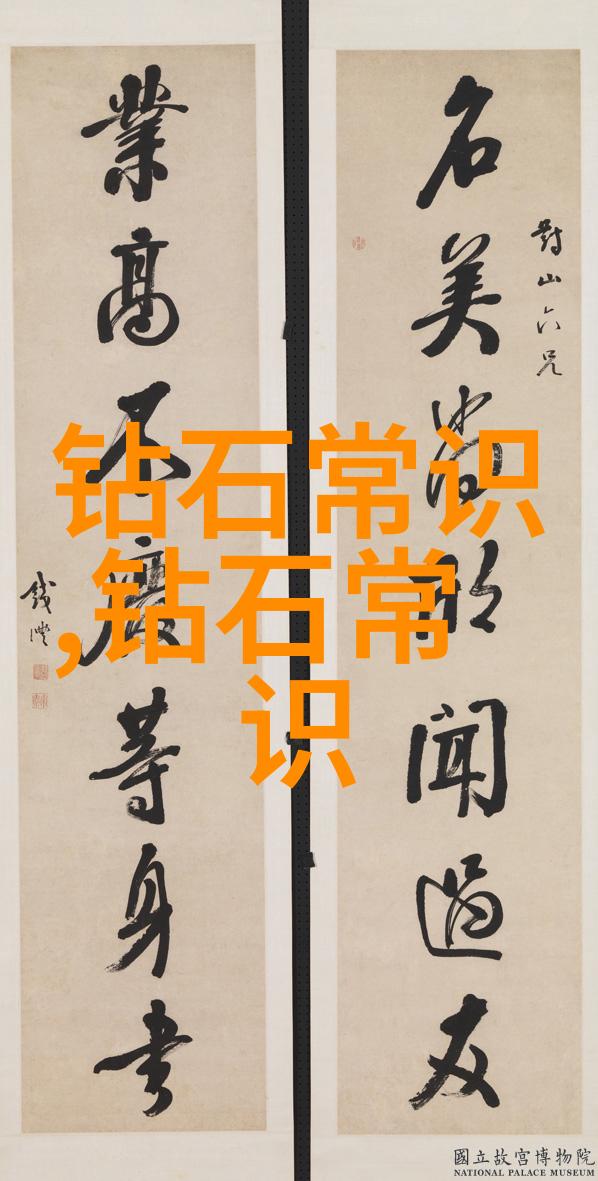 對山六兄
名美尚聞過友
業高不廢等身書
錢灃
钻石常识
,钻石常
识
國立故宮博物院
NATIONAL PALACE MUSEUM